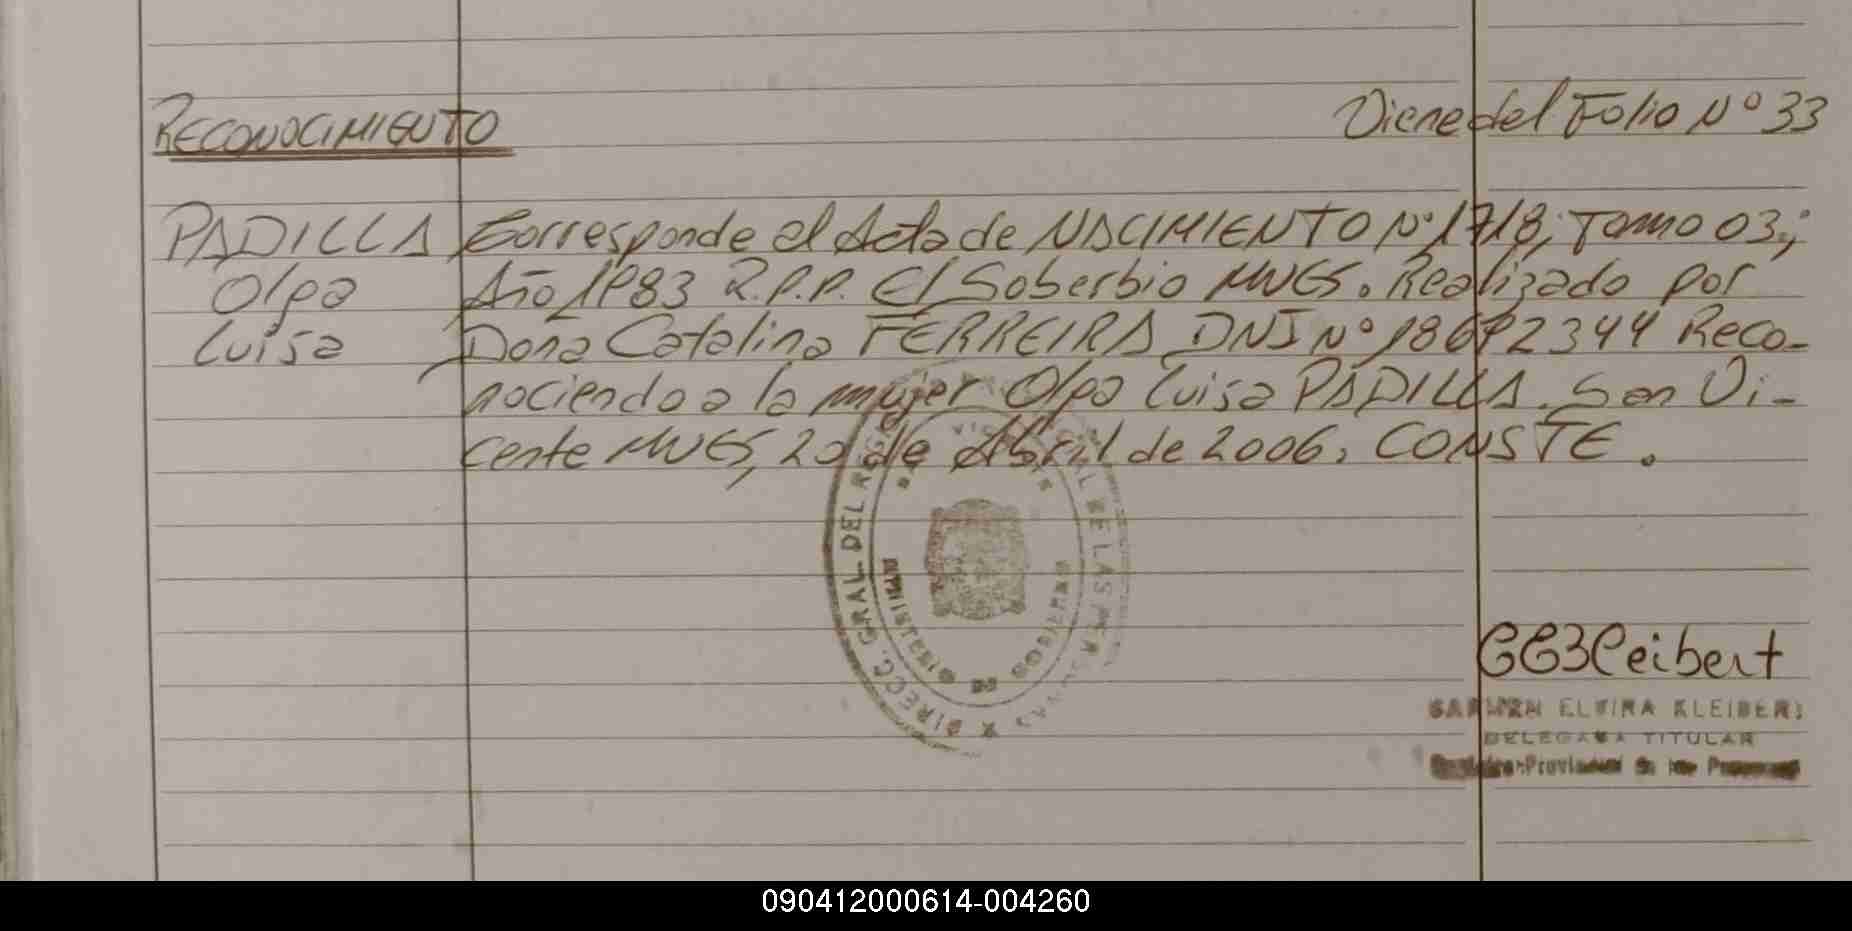 RECONOCIMIENTO
Viene del Folio Nº 33
PADILLA
Olga
Luisa
Corresponde al Acta de NACIMIENTO Nº 1718, Tomo 03;
Año 1983 R.P.P. El Soberbio MNES. Realizado por
Doña Catalina FERREIRA DNI Nº 18692344 Reco-
nociendo a la mujer Olga Luisa PADILLA. San Vi-
cente MNES, 20 de Abril de 2006. CONSTE.
DIRECC. GRAL. DEL DE LAS PERSONAS
MINISTERIO DE GOBIERNO
CARMEN ELVIRA KLEIBERT
DELEGADA TITULAR
Registro Provincial de las Personas
090412000614-004260